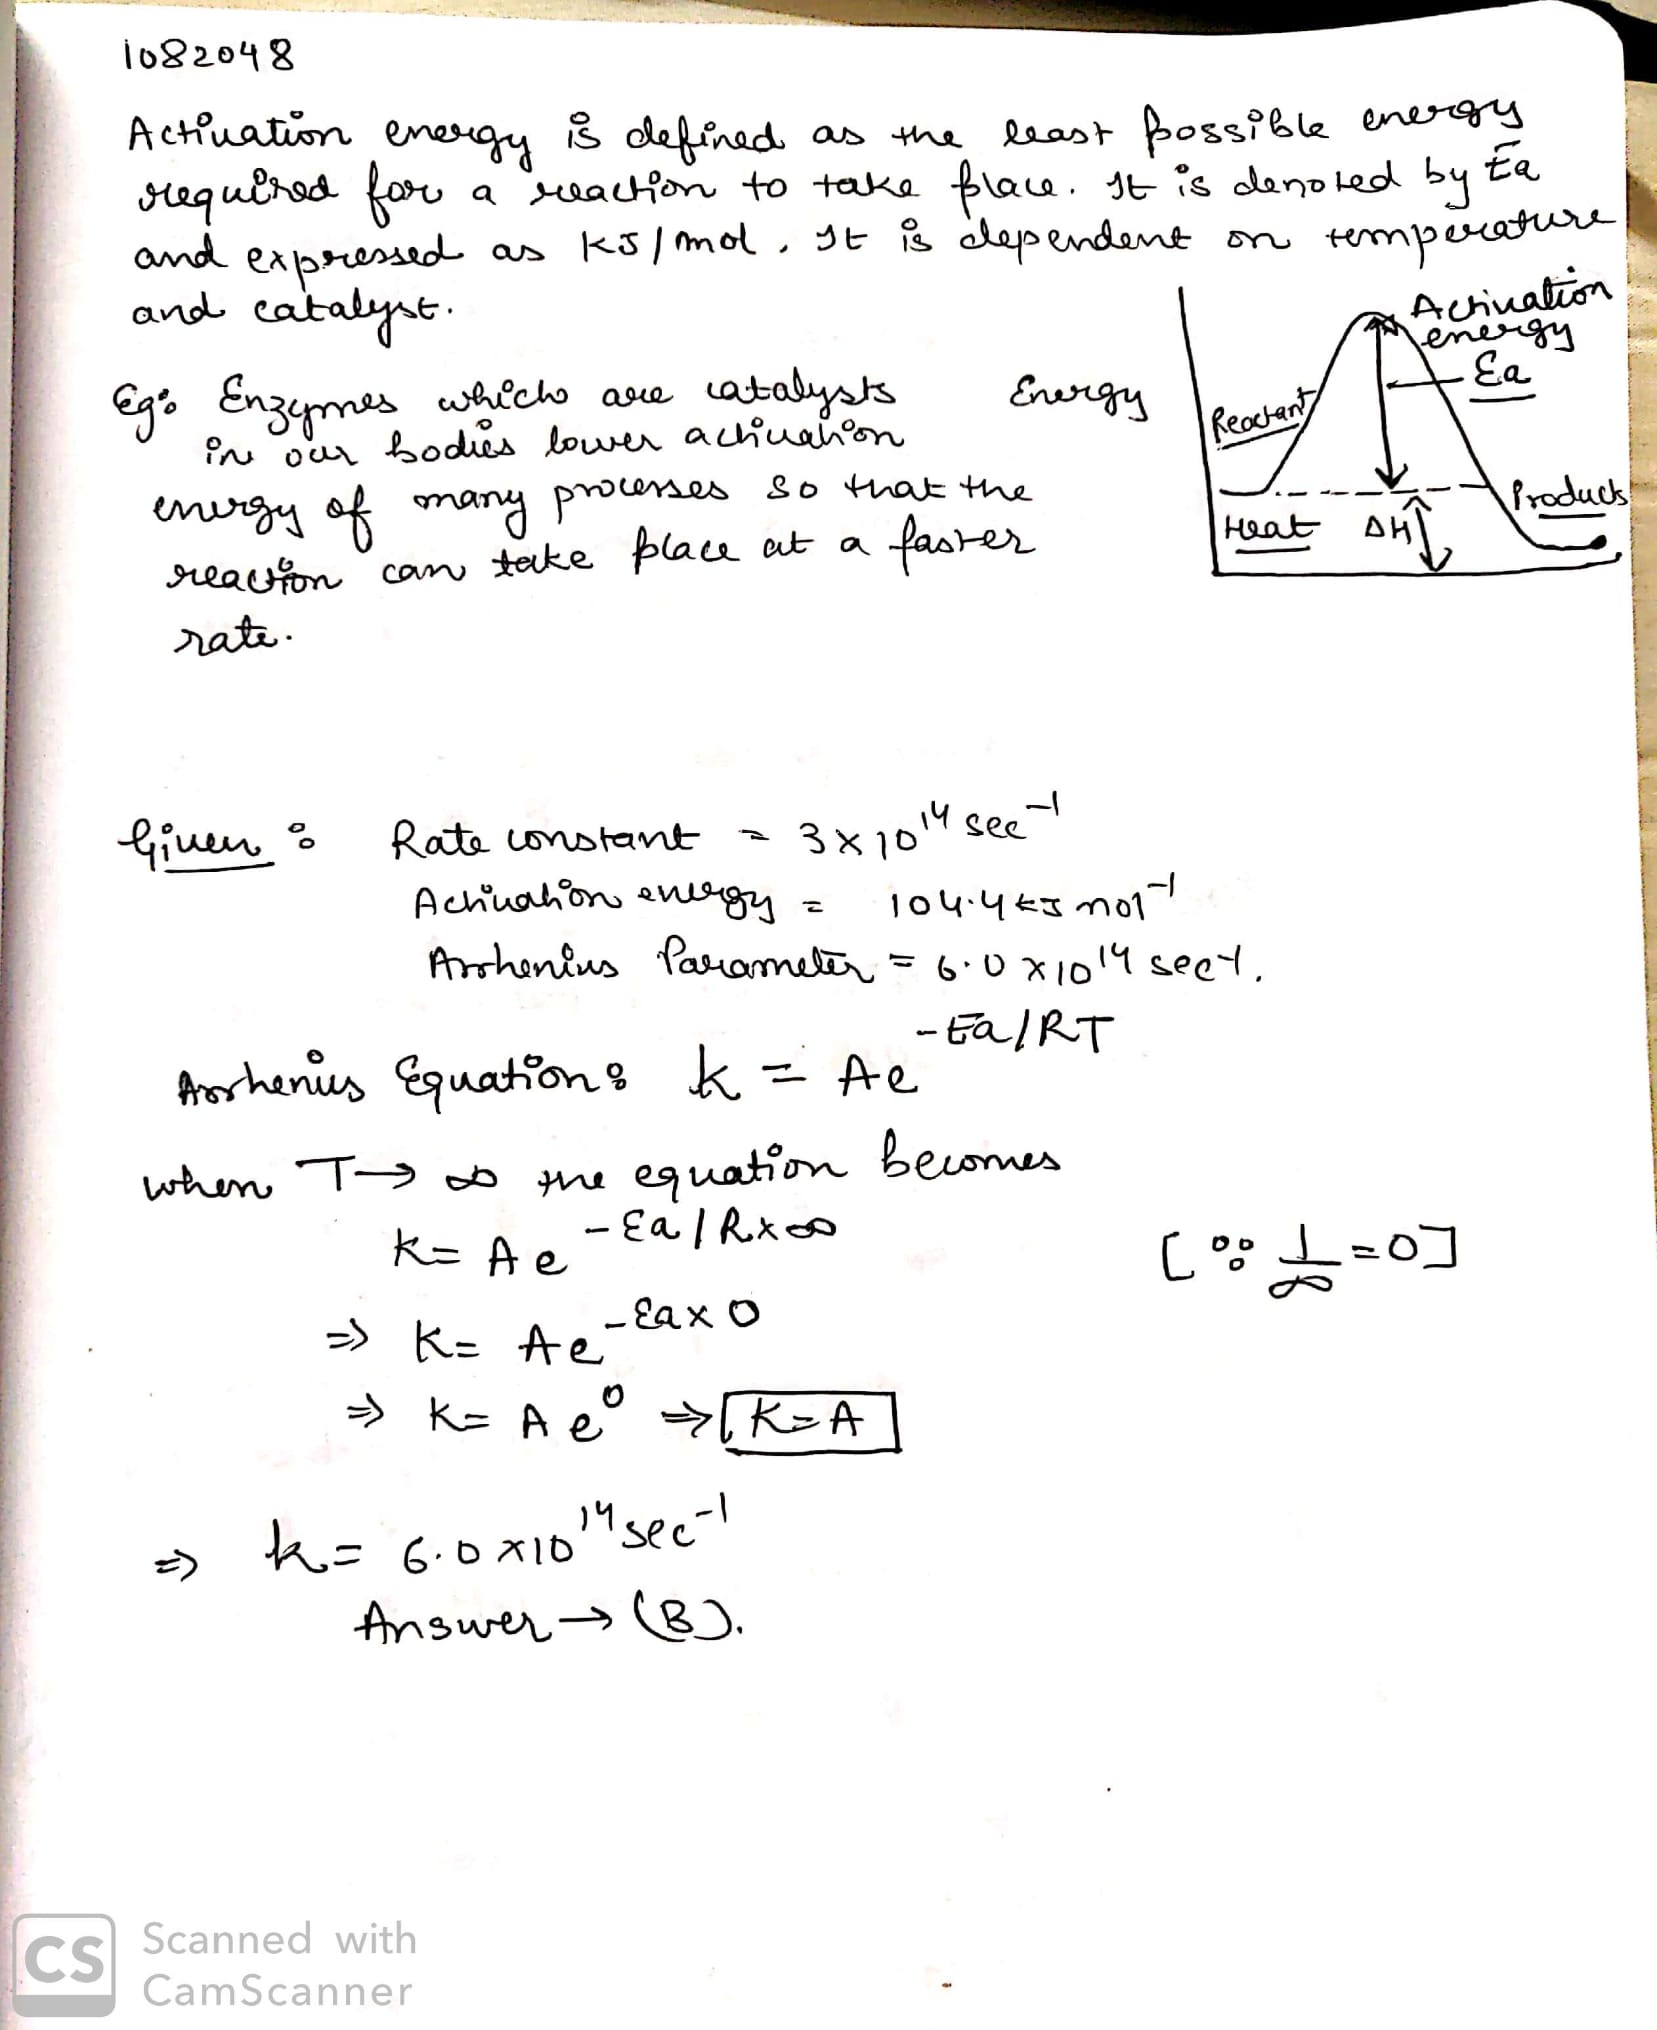 1082048
Activation energy is defined as the least possible energy
required for a reaction to take place. It is denoted by Ea
and expressed as KJ/mol. It is dependent on temperature
and catalyst.
Eg: Enzymes which are catalysts
in our bodies lower activation
energy of many processes so that the
reaction can take place at a faster
rate.
Energy
Activation
energy
Ea
Reactant
Products
Heat ΔH
Given: Rate constant = 3×10¹⁴ sec⁻¹
Activation energy = 104.4 KJ mol⁻¹
Arrhenius Parameter = 6.0 × 10¹⁴ sec⁻¹.
Arrhenius Equation: k = Ae^(-Ea/RT)
when T → ∞ the equation becomes
K = Ae^(-Ea/R×∞) [∵ 1/∞ = 0]
⇒ K = Ae^(-Ea×0)
⇒ K = Ae⁰ ⇒ K = A
⇒ k = 6.0 ×10¹⁴ sec⁻¹
Answer → (B).
CS Scanned with
CamScanner